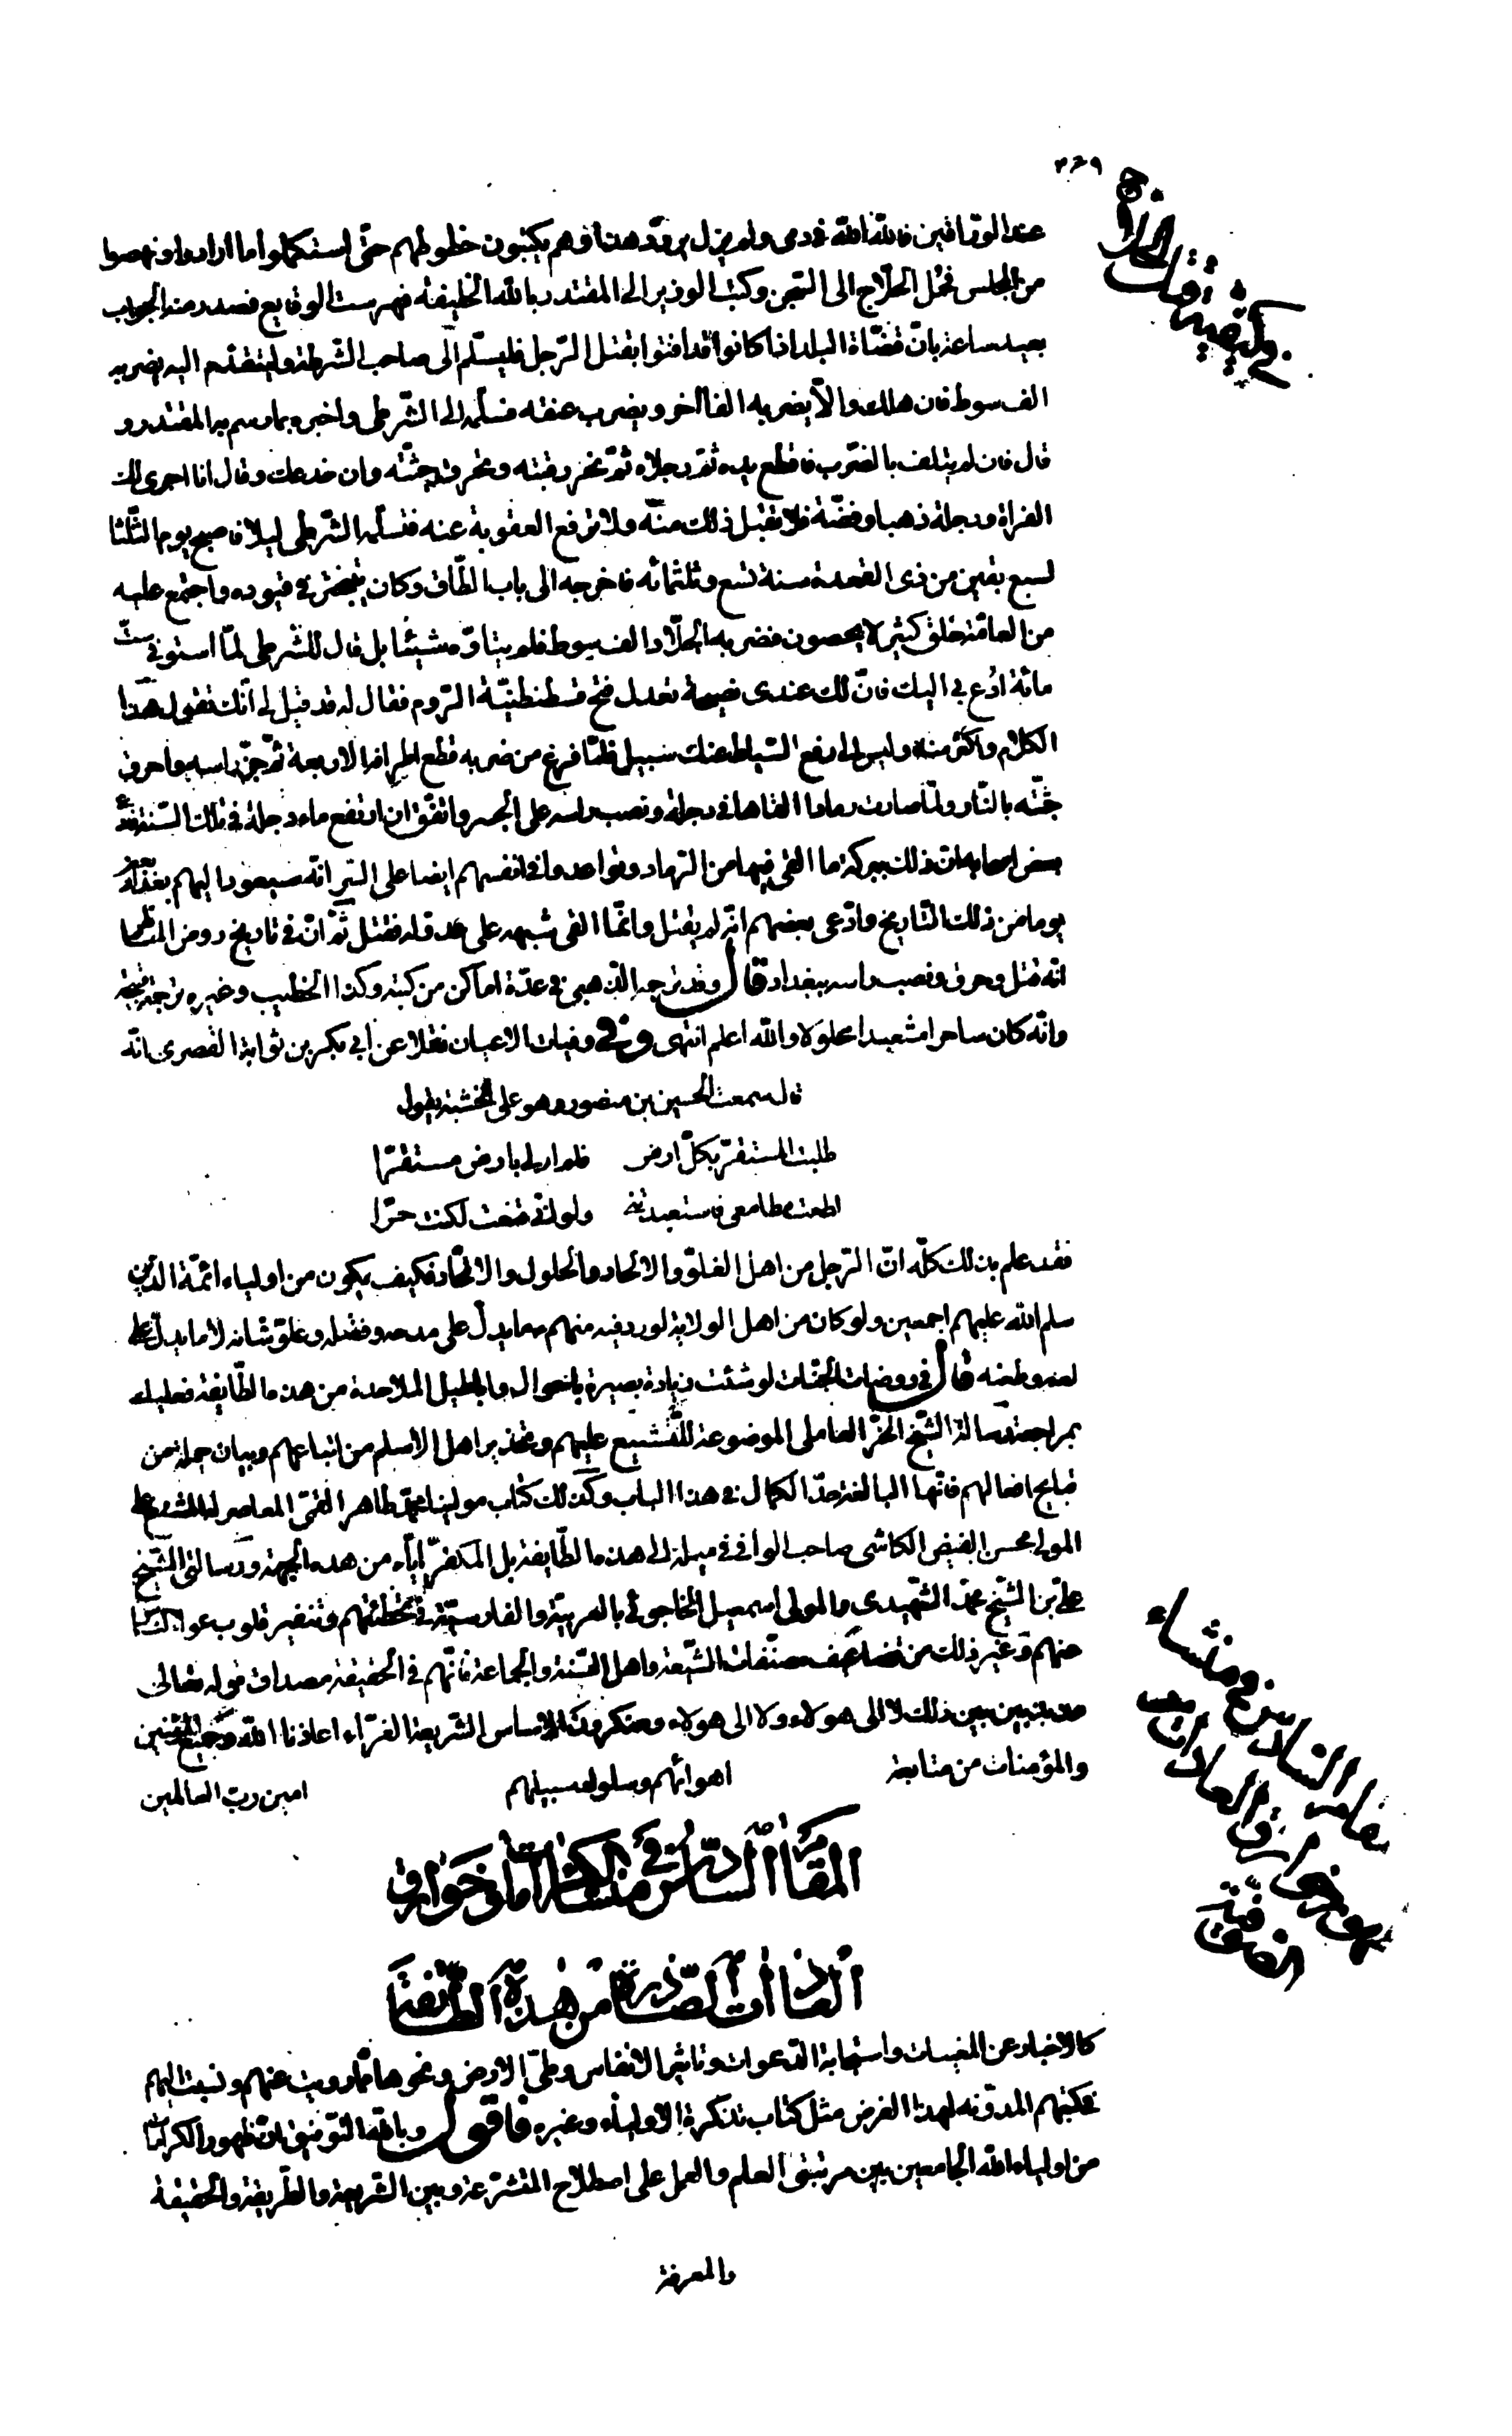 ٣٤٩
في كيفية قتل الحلاج
عند الورّاقين فاللّه اللّه في دمي ولم يزل يردّد هذا وهم يكتبون خطوطهم حتّى استكملوا ما ارادوا ونهضوا
من المجلس فحُمل الحلّاج الى السّجن وكتب الوزير الى المقتدر باللّه الخليفة فهرست الوقايع فصدر منه الجواب
بعد ساعة بانّ قضّاة البلد اذا كانوا قد افتوا بقتل الرّجل فليسلّم الى صاحب الشّرطة وليتقدّم اليه بضربه
الف سوط فان هلك والّا يضربه الفا اخر ويضرب عنقه فسلّمه الى الشّرطي واخبره بما رسم به المقتدر و
قال فان لم يتلف بالضّرب فاقطع يده ثمّ رجلاه ثمّ تحز رقبته وتحرق جثّته وان خدعك وقال انا اجري لك
الفراة ودجلة ذهبا وفضّة فلا تقبل ذلك منه ولا ترفع العقوبة عنه فتسلّمه الشّرطي ليلا فاصبح يوم الثّلثا
لسبع بقين من ذى القعدة سنة تسع وثلثمائه فاخرجه الى باب الطّاق وكان يتبختر في قيوده واجتمع عليه
من العامّة خلق كثير لا يحصون فضربه الجلّاد الف سوط فلم يتاوّه شيئا بل قال للشّرطي لمّا استوفي ستّ
مائة ادع بي اليك فانّ لك عندى نصيحة تعدل فتح قسطنطنيّة الرّوم فقال له قد قيل لي انّك تقول هذا
الكلام واكثر منه وليس لي الى رفع السّياط عنك سبيل فلمّا فرغ من ضربه قطع اطرافه الاربعة ثمّ جزّ راسه واحرق
جثّته بالنّار ولمّا صارت رمادا القاها في دجلة ونصب راسه على الجسر واتّفق ان ارتفع ماء دجلة في تلك السّنة فقال
بعض اصحابه ان ذلك ببركة ما القي فيها من الرّماد وتواعدوا في انفسهم ايضا على السّر انّه سيعود اليهم بعد
يوما من ذلك التّاريخ وادّعى بعضهم انّه لم يقتل وانّما القى شبهه على عدوّ له فقتل ثمّ انّ في تاريخ روض المناظر
انّه قتل وحرق ونصب راسه ببغداد قال وقد ترجمه الذّهبى في عدّة اماكن من كتبه وكذا الخطيب وغيره ترجمة قبيحة
وانّه كان ساحرا مشعبدا حلوليّا واللّه اعلم انتهى وفي وفيات الاعيان نقلا عن ابي بكر بن ثوابة القصرى انّه
قال سمعت الحسين بن منصور وهو على الخشبة يقول
طلبت المستقرّ بكلّ ارض فلم ار لي بارض مستقرّا
اطعت مطامعى فاستعبدتنى ولو انّي قنعت لكنت حرّا
فقد علم بذلك كلّه انّ الرّجل من اهل الغلوّ والالحاد والحلول والاتّحاد فكيف يكون من اولياء ائمّة الدّين
سلم اللّه عليهم اجمعين ولو كان من اهل الولاية لورد فيه منهم ما يدلّ على مدحه وفضله وعلوّ شانه لا ما يدلّ على
لعنه وطعنه قال في روضات الجنّات لو شئت زيادة بصيرة باحوال واباطيل الملاحدة من هذه الطّايفة فعليك
بمراجعة رسالة الشّيخ الحرّ العاملى الموضوعة للتّشنيع عليهم وتحذير اهل الاسلام من اتباعهم وبيان جملة من
قبايح افعالهم فانّها البالغة حدّ الكمال في هذا الباب وكذلك كتاب مولينا محمّد طاهر القمّى المعاصر له المشنع على
المولى محسن الفيض الكاشى صاحب الوافى في ميله الى هذه الطّايفة بل المكفّر ايّاه من هذه الجهة ورسالتي الشّيخ
عليّ بن الشّيخ محمّد الشّهيدى والمولى اسمعيل الخاجوئي بالعربيّة والفارسيّة في تخطئتهم وتنفير قلوب عوام النّاس
عنهم وغير ذلك من تضاعيف مصنّفات الشّيعة واهل السّنة والجماعة فانّهم في الحقيقة مصداق قوله تعالى
مذبذبين بين ذلك لا الى هولاء ولا الى هولاء ومنكرون لاساس الشّريعة الغرّاء اعاذنا اللّه وجميع المؤمنين
والمؤمنات من متابعة اهوائهم وسلوك سبيلهم امين ربّ العالمين
المقام السّادس في منشأ الكرامات وخوارق
العادات الصّادرة من هذه الطّائفة
المقام السادس في منشاء
خوارق العادات
الصوفية
كالاخبار عن المغيبات واستجابة الدّعوات وتاثير الانفاس وطيّ الارض ونحوها ممّا رويت عنهم ونسبت اليهم
في كتبهم المدوّنه لهذا الغرض مثل كتاب تذكرة الاولياء وغيره فاقول وباللّه التّوفيق انّ ظهور الكرامات
من اولياء اللّه الجامعين بين مرتبتى العلم والعمل على اصطلاح المتشرّعة وبين الشّريعة والطّريقة والحقيقة
والمعرفة